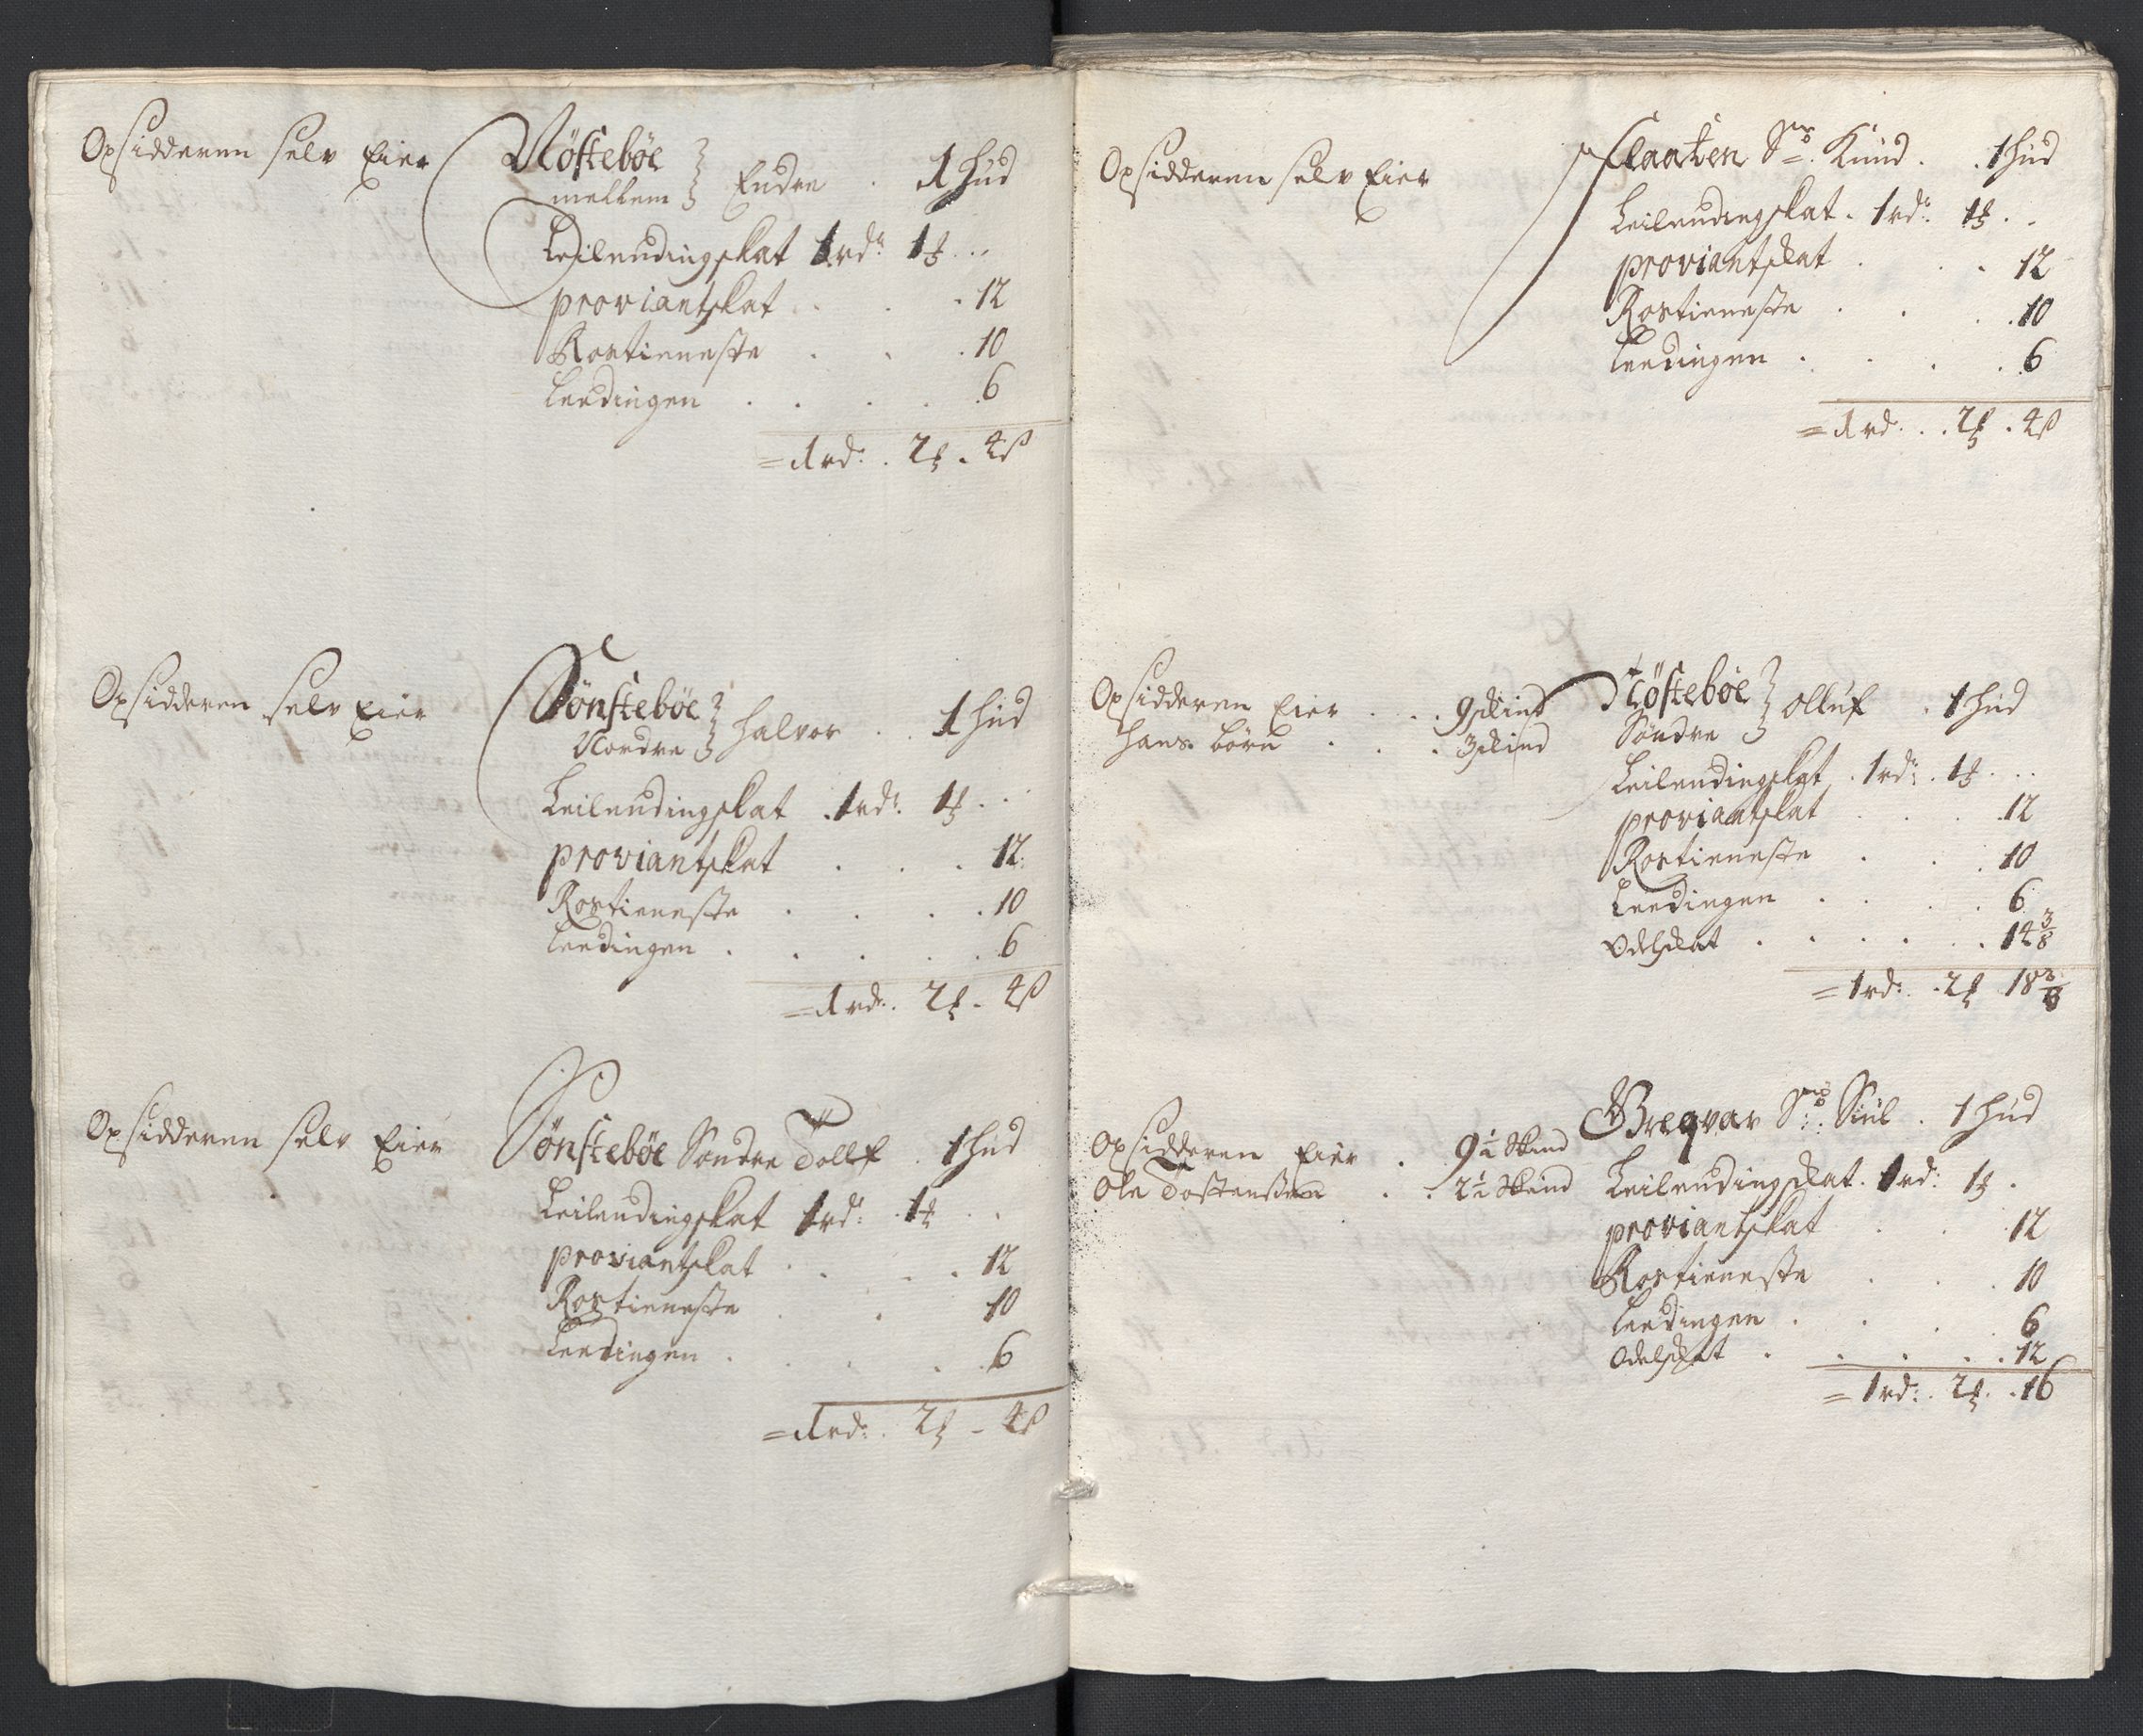 Opsidderen selv Eier
Nöstebøe mellem } Endre . 1 hud
Leilendingskat 1 rdr 1 ℔ ...
proviantskat . . . 12
Rostieneste . . . 10
Leedingen . . . . 6
= 1 rd: . 2 ℔ . 4 ß
Opsidderen selv Eier
Sönstebøe Nordre } Halvor . . 1 hud
Leilendingskat . 1 rdr. 1 ℔ . . .
proviantskat . . . 12.
Rostieneste . . . . 10
Leedingen . . . . . 6
= 1 rdr. 2 ℔ . 4 ß
Opsidderen selv Eier
Sönstebøe Søndre Tollf . 1 hud
Leilendingskat 1 rdr: . 1 ℔ . .
proviantskat . . . . 12
Rostieneste . . 10
Leedingen . . . . 6
= 1 rd: . 2 ℔ - 4 ß
Opsidderen selv Eier
Flaaten Knud . . 1 hud
Leilendingskat . 1 rdr: 1 ℔ . .
proviantskat . . . 12
Rostieneste . . . 10
Leedingen . . . . 6
= 1 rd: . . 2 ℔ . 4 ß
Opsidderen Eier . . . 9 skind
hans børn . . . 3 skind
Nöstebøe Søndre } Olluf . 1 hud
Leilendingskat . 1 rdr: . 1 ℔ . . .
proviantskat . . . 12
Rostieneste . . . 10
Leedingen . . . . 6
Odelskat . . . . . . 14 3/8
= 1 rd: . 2 ℔ 18 3/8
Opsidderen Eier . 9 1/2 Skind
Ole Tostensen . . 2 1/2 Skind
Bregvar . 1 hud
Leilendingskat . 1 rd: 1 ℔ .
proviantskat . . 12
Rostieneste . . . 10
Leedingen . . . . 6
Odelskat . . . . . 12
= 1 rd: . 2 ℔ . . 16